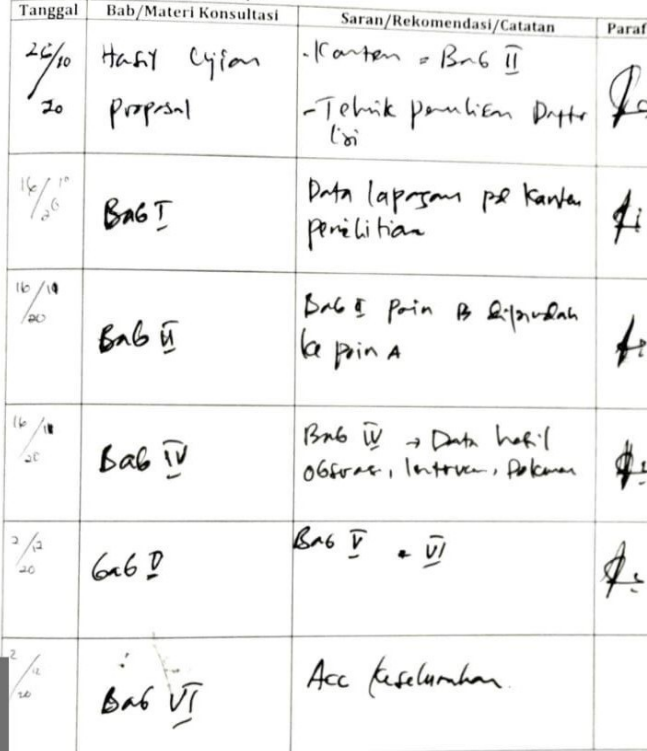 Tanggal Bab/Materi Konsultasi Saran/Rekomendasi/Catatan Paraf
Hasil Ujian
Proposal
Bab II
-Teknik penulisan Daftar
Isi
Bab I
Data lapangan
penelitian
16/11
/20
Bab II
Bab I poin B dipindah
ke poin A
16/11
/20
Bab IV
Bab IV → Data hasil
2/12
20
Bab V
Bab V VI
2/12
20
Bab VI
Acc keseluruhan.